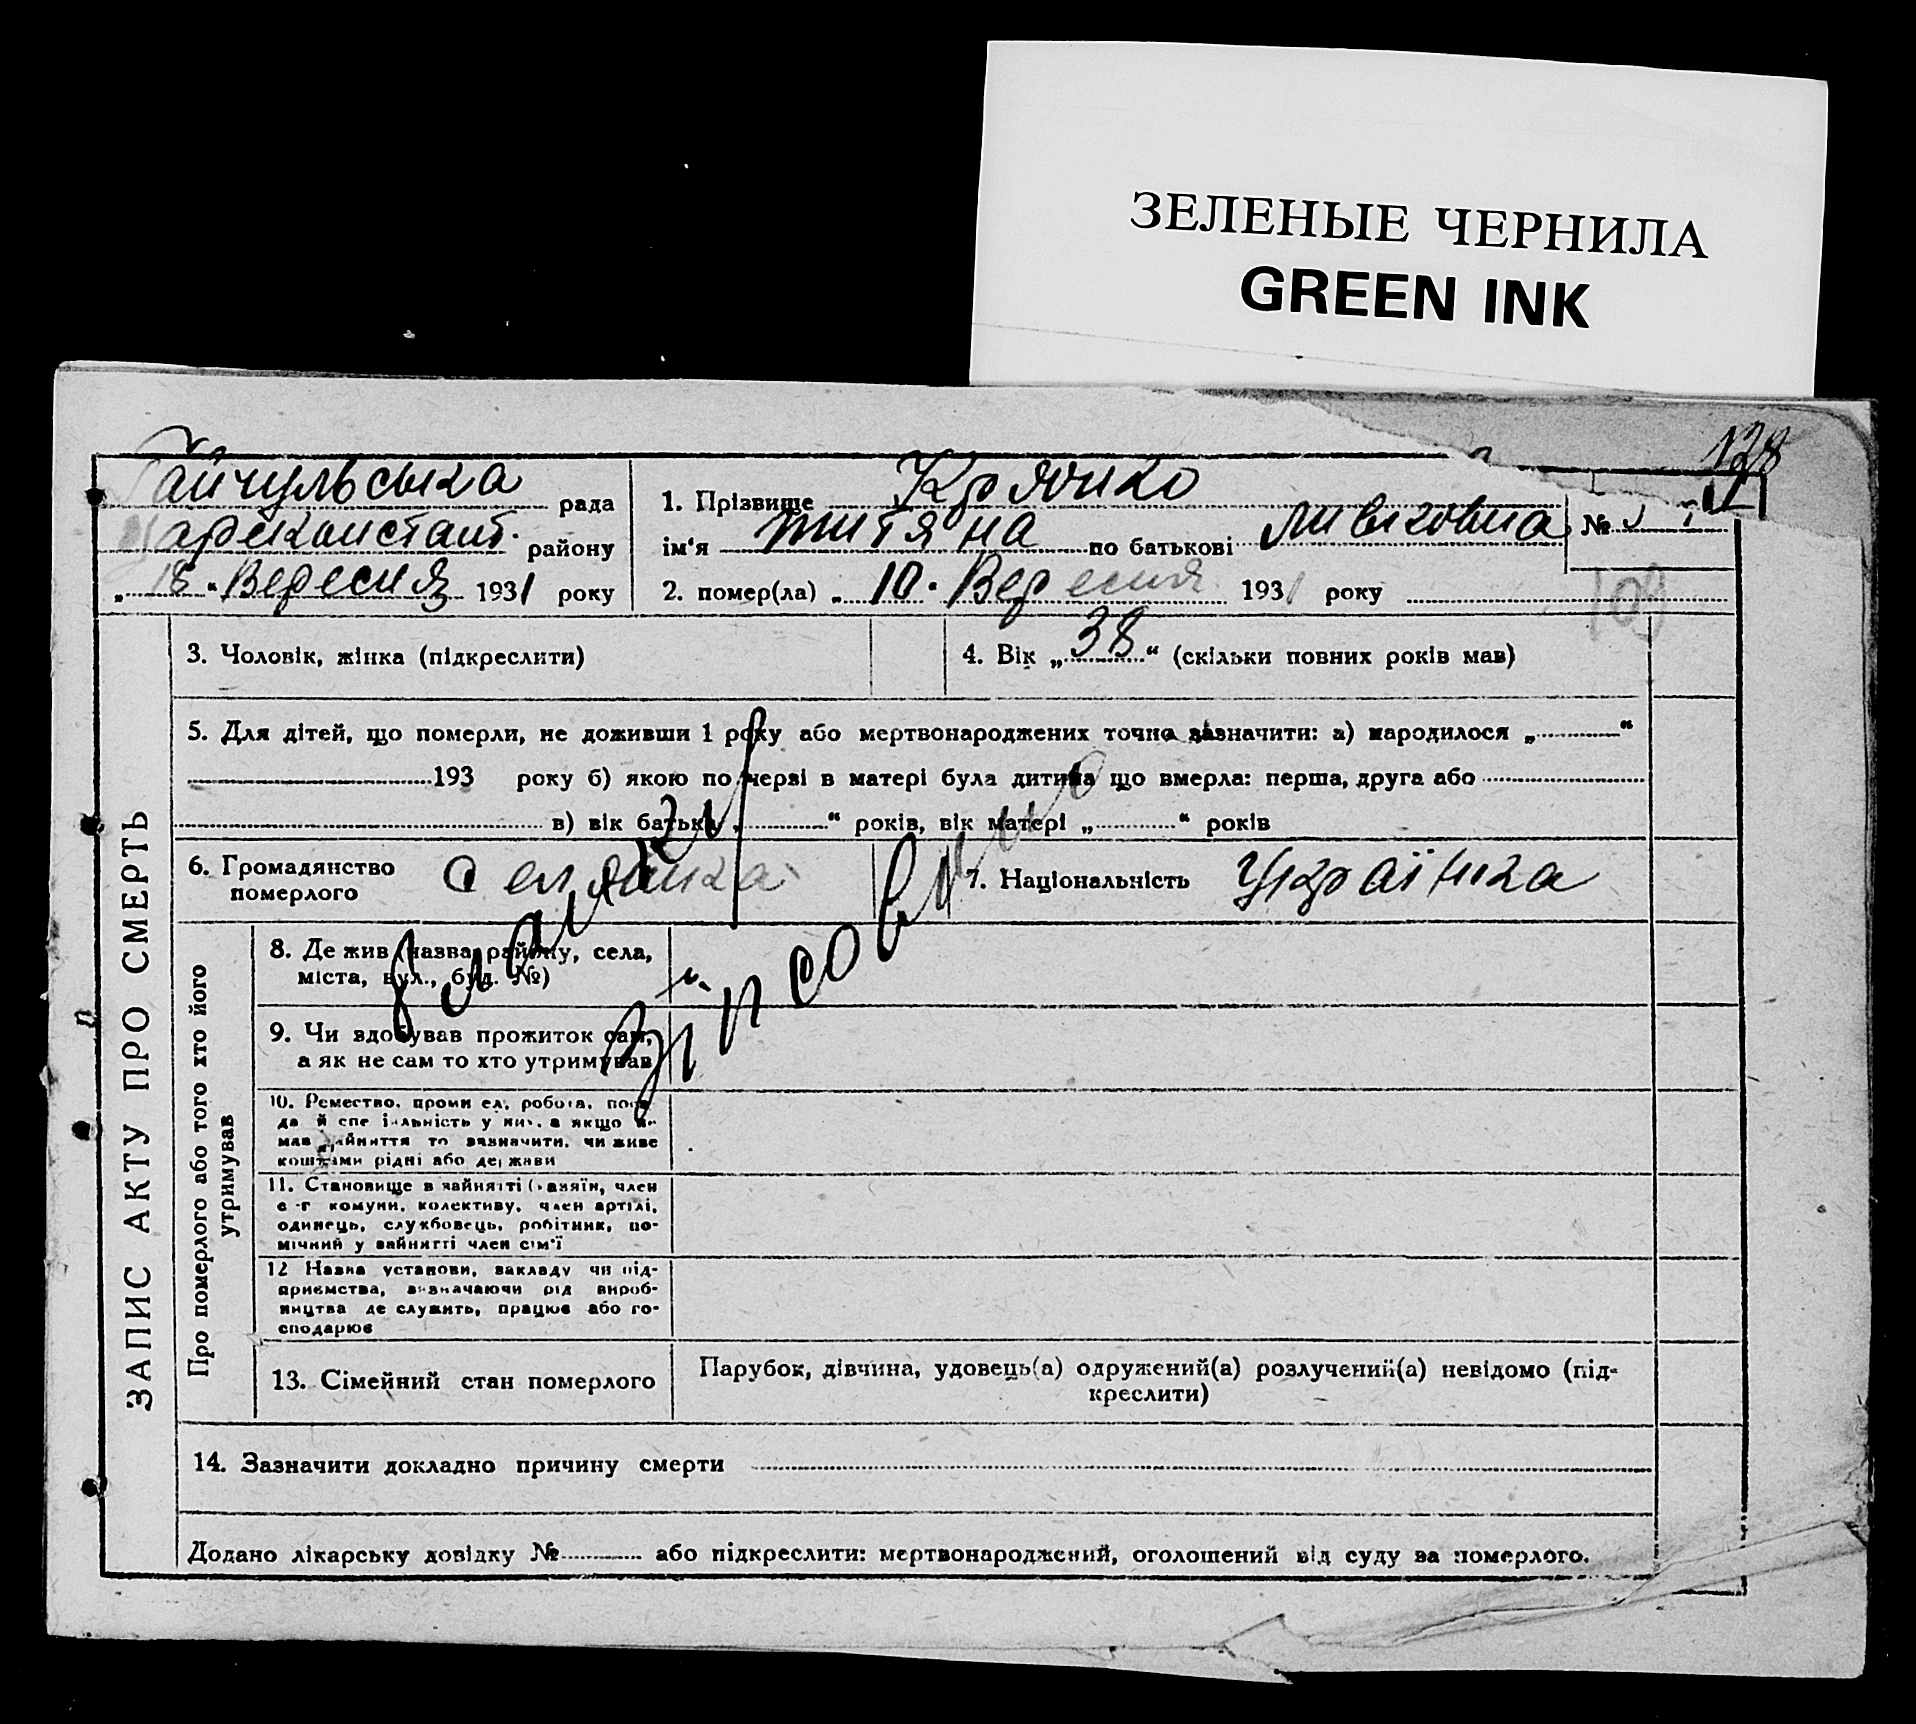 ЗЕЛЕНЫЕ ЧЕРНИЛА
GREEN INK
138
Гайчульська рада
району
„18“ Вересня 1931 року
1. Прізвище Крячко
ім'я Титяна по батькові
№
2. помер(ла) „10. Вересня 1931 року
109
ЗАПИС АКТУ ПРО СМЕРТЬ
3. Чоловік, жінка (підкреслити)
4. Вік „38“ (скільки повних років мав)
5. Для дітей, що померли, не доживши 1 року або мертвонароджених точно зазначити: а) народилося „ “
193 року б) якою по черзі в матері була дитина що вмерла: перша, друга або
в) вік батька „ “ років, вік матері „ “ років
6. Громадянство
померлого
Селянка
7. Національність Українка
Про померлого або того хто його
утримував
8. Де жив (назва району, села,
міста, вул., буд. №)
9. Чи здобував прожиток сам,
а як не сам то хто утримував
10. Ремество, промисел, робота, поса-
да й спеціальність у них, а якщо не
мав зайняття то зазначити, чи живе
коштами рідні або держави
11. Становище в зайнятті (хазяїн, член
с-г комуни, колективу, член артілі,
одинець, службовець, робітник, по-
мічний у зайнятті член сім'ї
12 Назва установи, закладу чи під-
приємства, визначаючи рід вироб-
ництва де служить, працює або го-
сподарює
13. Сімейний стан померлого
Парубок, дівчина, удовець(а) одружений(а) розлучений(а) невідомо (під-
креслити)
14. Зазначити докладно причину смерти
Додано лікарську довідку № або підкреслити: мертвонароджений, оголошений від суду за померлого.